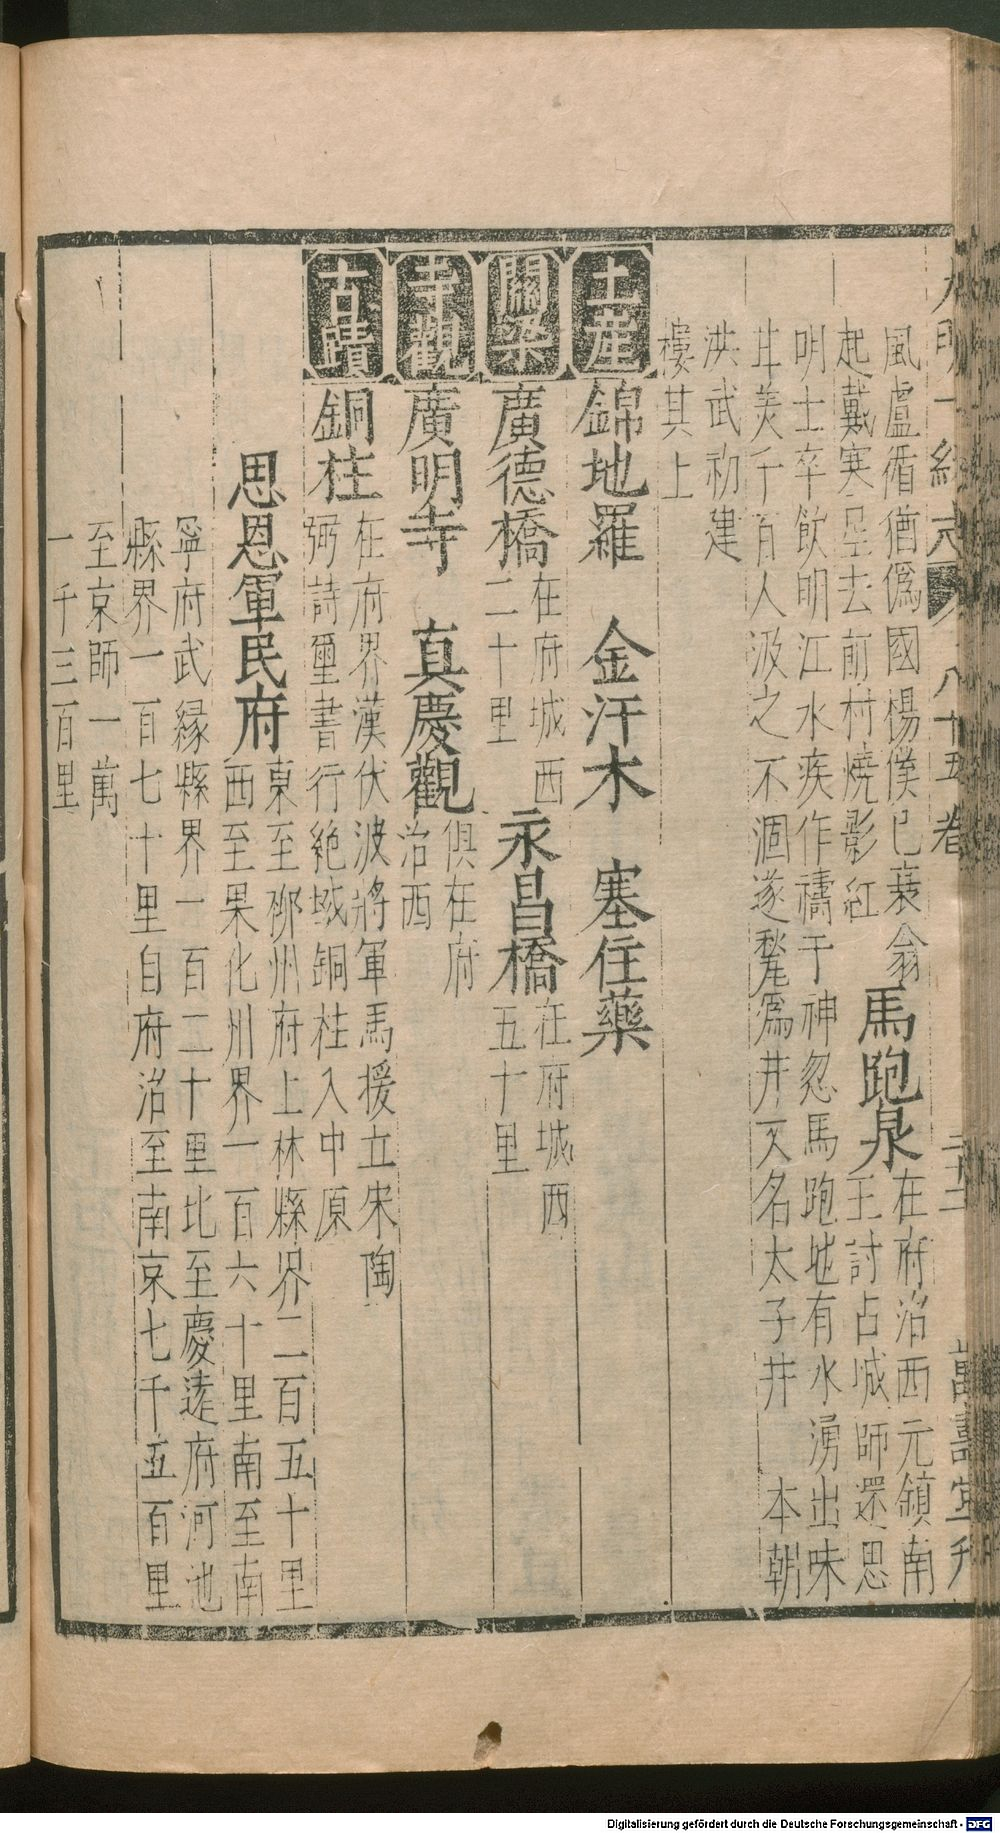 大明一統志 八十五卷 二十二 萬壽堂刊
風盧循猶偽國楊僕已衰翁 馬跑泉 在府治西元鎮南
起戴寒星去前村燒影紅 王討占城師還思
明士卒飲明江水疾作禱于神忽馬跑地有水湧出味
甘美千百人汲之不涸遂甃爲井又名太子井 本朝
洪武初建
樓其上
土産 錦地羅 金汗木 塞住藥
關梁 廣德橋 在府城西 二十里 永昌橋 在府城西 五十里
寺觀 廣明寺 真慶觀 俱在府 治西
古蹟 銅柱 在府界漢伏波將軍馬援立宋陶
弼詩璽書行絶域銅柱入中原
思恩軍民府 東至郁州府上林縣界二百五十里
西至果化州界一百六十里南至南
寧府武緣縣界一百二十里北至慶遠府河池
縣界一百七十里自府治至南京七千五百里
至京師一萬
一千三百里
Digitalisierung gefördert durch die Deutsche Forschungsgemeinschaft - DFG